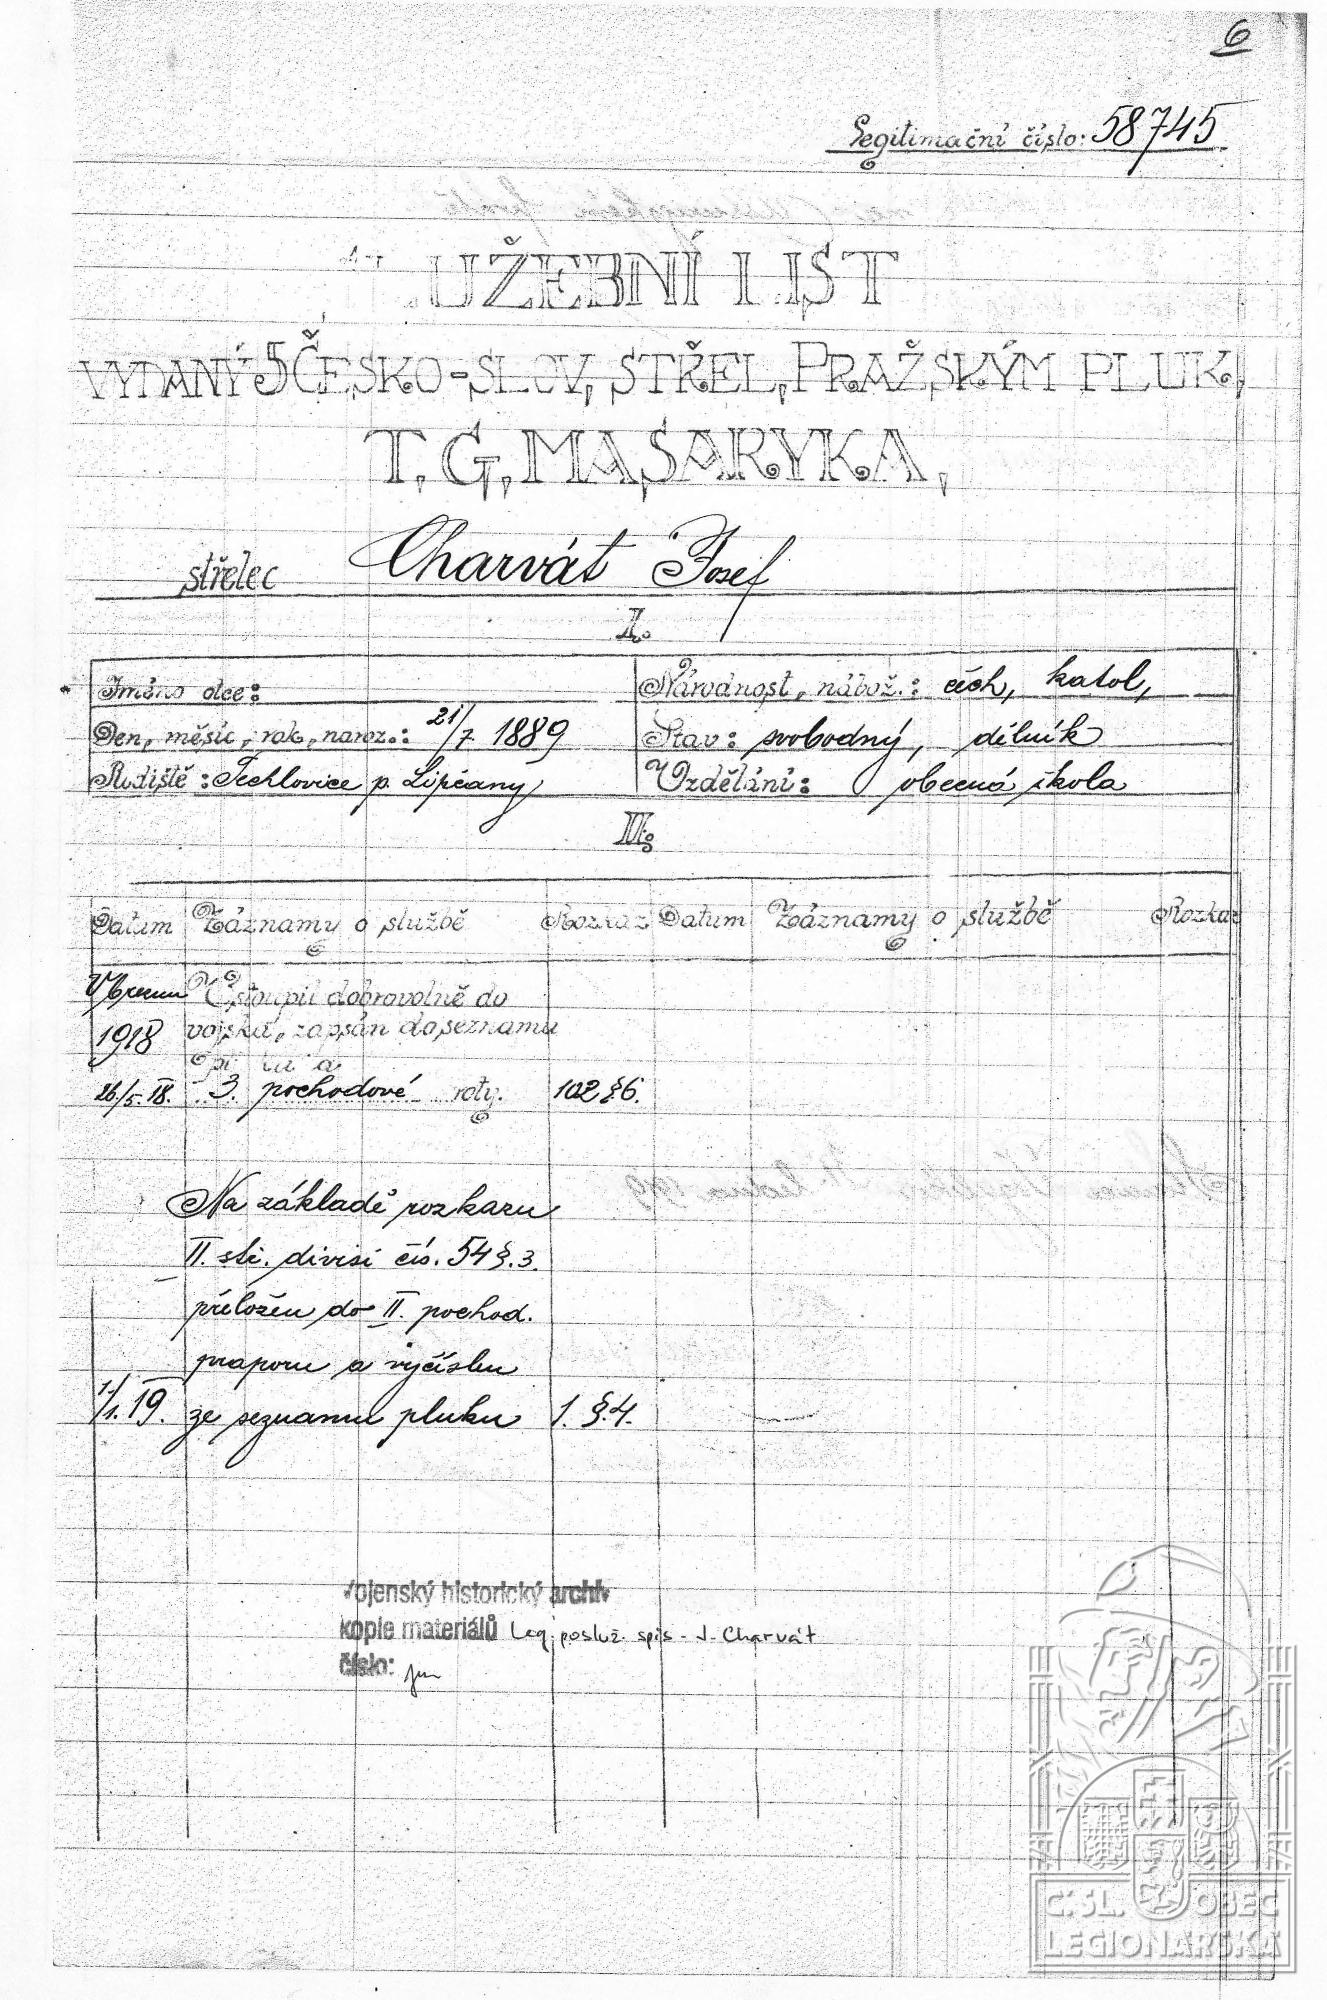 6
Legitimační číslo: 58745
UŽEBNÍ LIST
VYDANÝ 5 ČESKO-SLOV, STŘEL, PRAŽSKÝM PLUK,
T. G. MASARYKA,
střelec Charvát Josef
I.
Jméno otce: Národnost, nábož.: čech, katol,
Den, měsíc, rok, naroz.: 21/7. 1889 Stav: svobodný, dělník
Rodiště: Techlovice p. Lipčany Vzdělání: obecná škola
II.
Datum Záznamy o službě Rozkaz Datum Záznamy o službě Rozkaz
V březnu Vstoupil dobrovolně do
1918 vojska, zapsán do seznamu
26/5. 18. 3. pochodové roty. 102 § 6.
Na základě rozkazu
II. stř. divisi čís. 54 §. 3.
přeložen do II. pochod.
praporu a vyčíslen
1/1. 19. ze seznamu pluku 1. §. 4.
Vojenský historický archiv
kopie materiálů Leg. posluž. spis - J. Charvát
číslo:
Č. SL. OBEC
LEGIONÁŘSKÁ